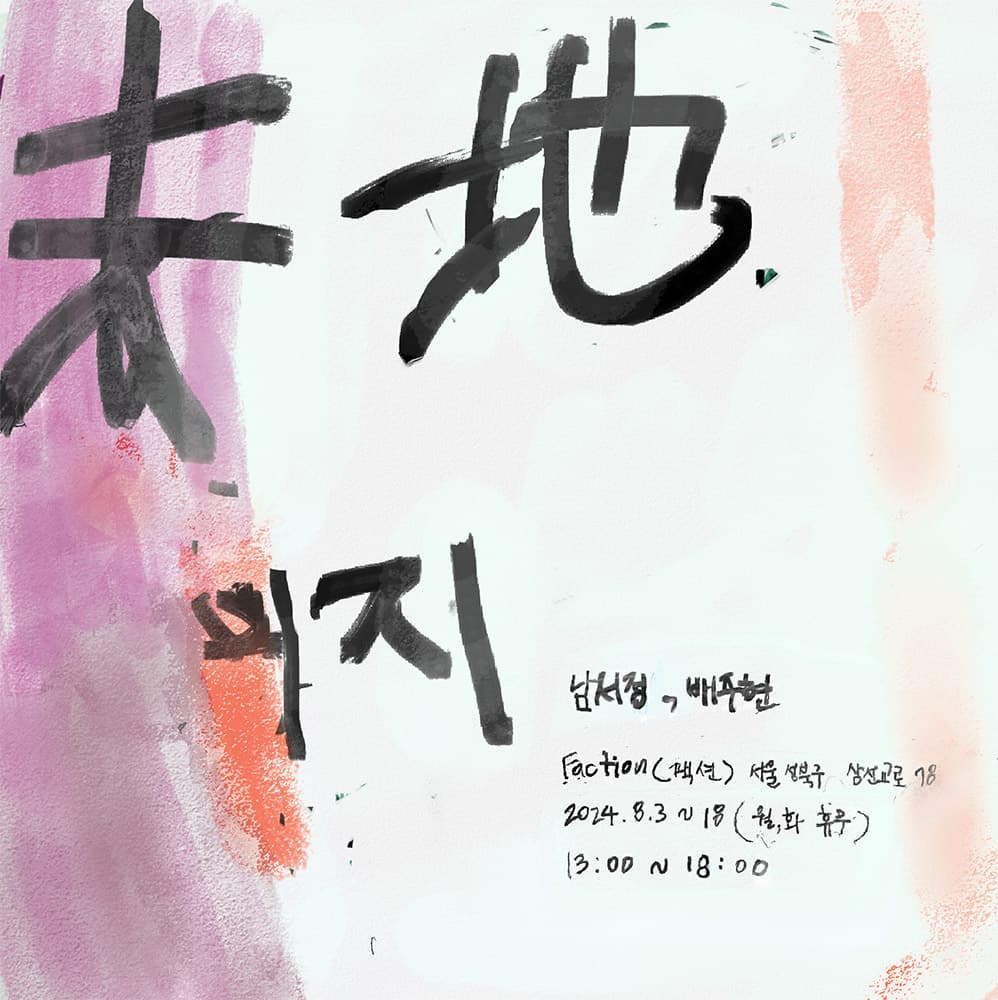 未地
미지
남서정 , 배주현
Faction (팩션) 서울 성북구 삼선교로 78
2024.8.3 ~ 18 (월,화 휴무)
13:00 ~ 18:00